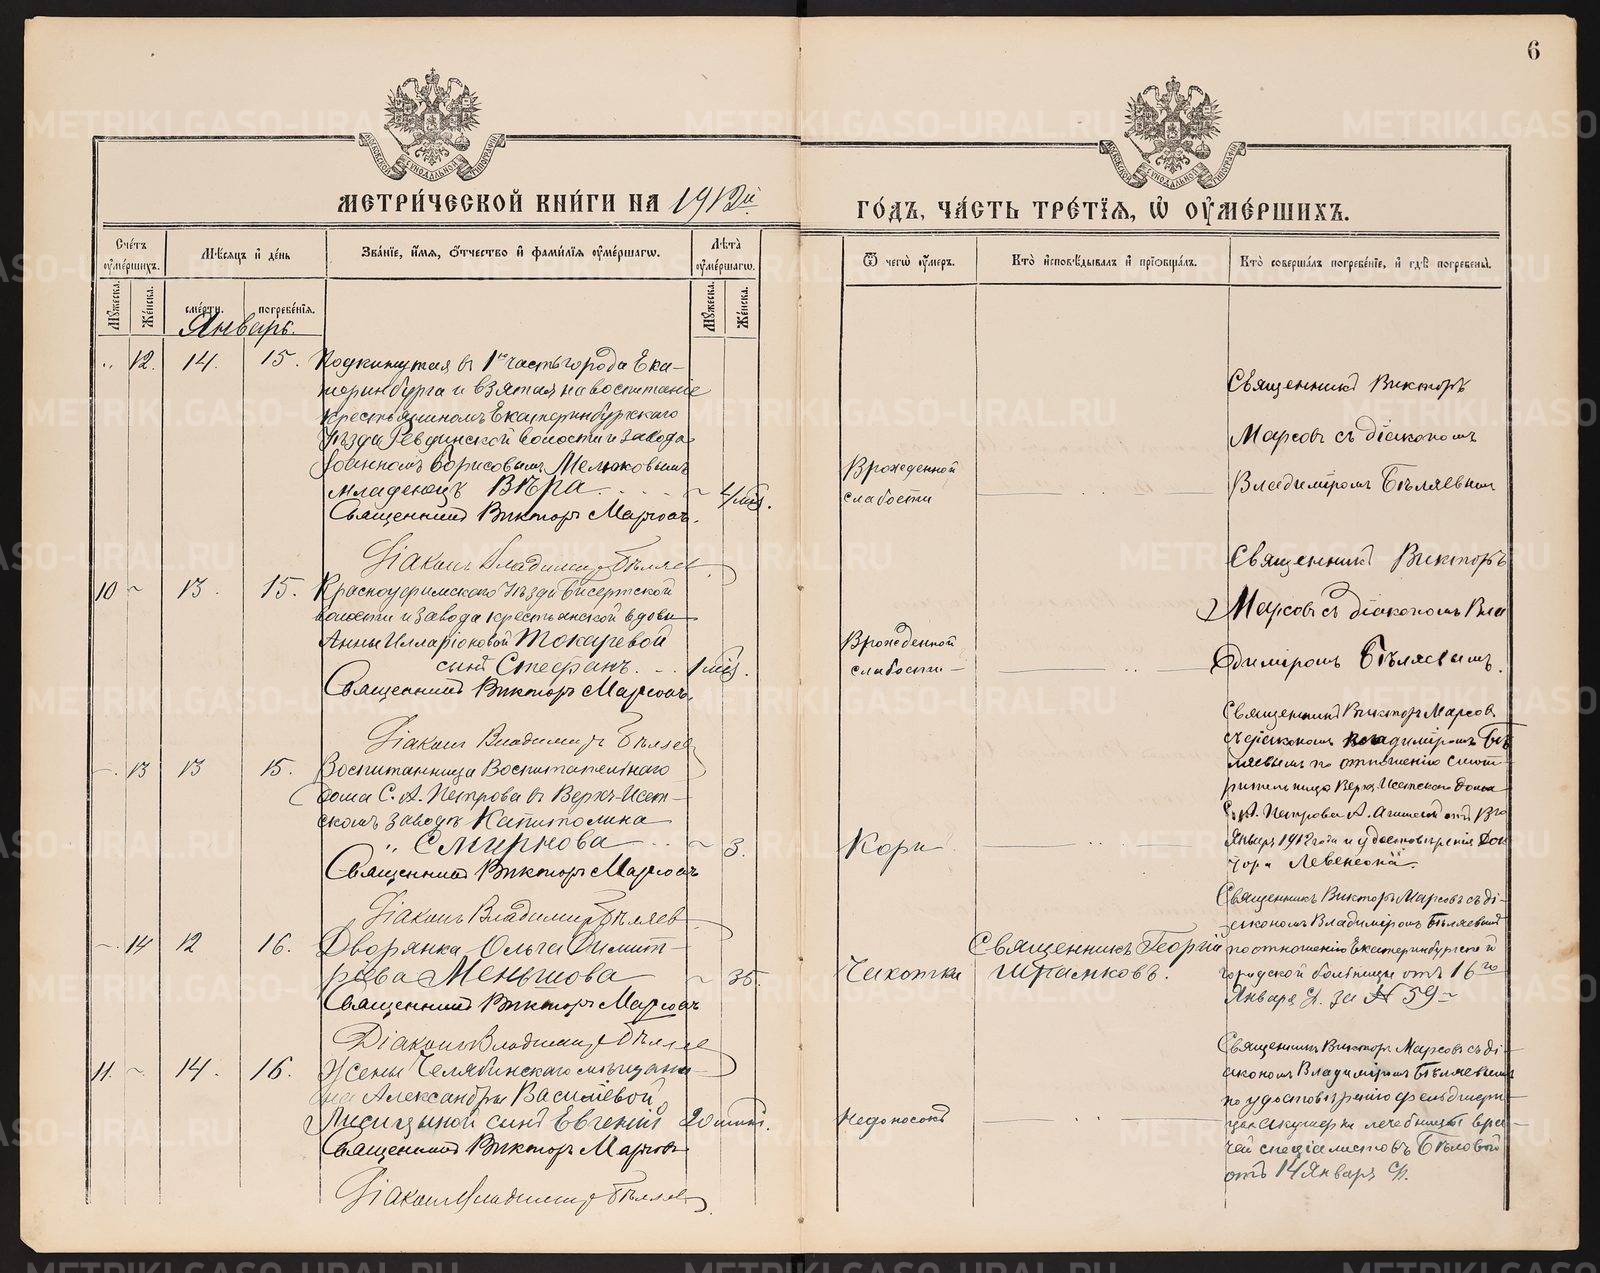 6
МЕТРИ́ЧЕСКОЙ КНИ́ГИ НА 1912й
ГО́ДЪ, ЧА́СТЬ ТРЕ́ТЇЯ, Ѡ ОУМЕ́РШИХЪ.
Сче́тъ оуме́ршихъ.
Мѣсяцъ и де́нь
Зва́нїе, и́мя, о́тчество и фами́лїя оуме́ршагѡ.
Лѣта̀ оуме́ршагѡ.
Ѿ чегѡ̀ оу́меръ.
Кто̀ исповѣ́дывалъ и прїобща́лъ.
Кто̀ соверша́лъ погребе́нїе, и гдѣ̀ погребены̀.
Мꙋ́жеска.
Же́нска.
сме́рти.
погребе́нїя.
Мꙋ́жеска.
Же́нска.
Январь.
12. 14. 15. Подкинутая в 1ю часть города Ека-
теринбурга и взятая на воспитаніе
крестьяниномъ Екатеринбургскаго
Уѣзда Ревдинской волости и завода
Іоанномъ Борисовымъ Мелюковымъ
младенецъ Вѣра
Священникъ Викторъ Марсовъ.
Діаконъ Владимиръ Бѣляев
Врожденной
слабости
Священникъ Викторъ
Марсовъ съ діакономъ
Владиміромъ Бѣляевым
10 13. 15. Красноуфимскаго Уѣзда Бисертской
волости и завода крестьянской вдовы
Анны Илларіоновой Токаревой
сынъ Стефанъ. 1 мѣс.
Священникъ Викторъ Марсовъ.
Діаконъ Владимиръ Бѣляев
Врожденной
слабости
Священникъ Викторъ
Марсовъ съ діакономъ Вла
диміромъ Бѣляевымъ.
13 13 15. Воспитанница Воспитательнаго
Дома С. А. Петрова в Верхъ-Исет-
скомъ заводѣ Капитолина
Смирнова 3.
Священникъ Викторъ Марсовъ
Діаконъ Владимиръ Бѣляев
Кори
Священникъ Викторъ Марсов
съ діакономъ Владиміромъ Бѣ
ляевымъ по отношенію смот
рительницы Верхъ Исетскаго дома
С. А. Петрова
Января 1912 года и удостовѣренія Док
тора Левенсона
14 12 16. Дворянка Ольга Димит-
ріева Меньшова 35.
Священникъ Викторъ Марсовъ
Діаконъ Владимиръ Бѣляев
Чахотки
Священникъ Георгій
Священникъ Викторъ Марсовъ съ ді-
акономъ Владиміромъ Бѣляевым
по отношенію Екатеринбургской
городской больницы отъ 16го
Января с/г. за № 59
11. 14. 16. Жены Челябинскаго мѣщани-
на Александры Василіевой
Лисицыной сынъ Евгеній 20 минт.
Священникъ Викторъ Марсовъ
Діаконъ Владимиръ Бѣляев
Недоносокъ
Священникъ Викторъ Марсовъ съ ді-
акономъ Владиміромъ Бѣляевымъ
по удостовѣренію фельдшери-
цы акушерки лечебницы вра-
чей спеціалистовъ Бѣловой
отъ 14 Января с/г.
METRIKI.GASO-URAL.RU